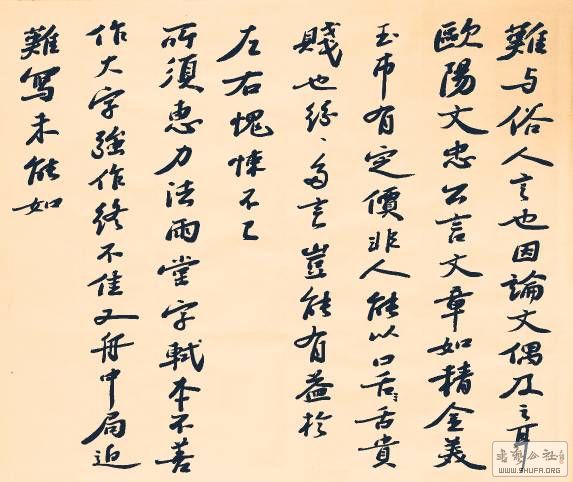 難与俗人言也因論文偶及之耳
歐陽文忠公言文章如精金美
玉市有定價非人能以口舌〻舌貴
賤也紛〻多言豈能有益於
左右愧悚不已
所須惠力法雨堂字軾本不善
作大字強作終不佳又舟中局迫
難寫未能如
書藝公社
WWW.SHUFA.ORG